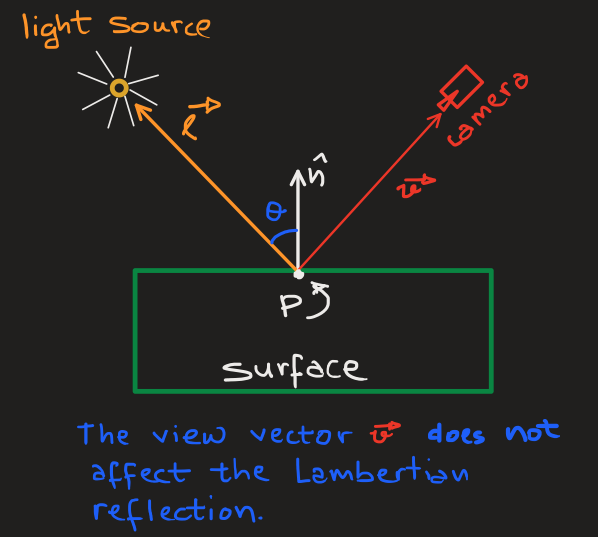 light source
camera
l
n̂
v
θ
P
surface
The view vector v does not
affect the Lambertian
reflection.